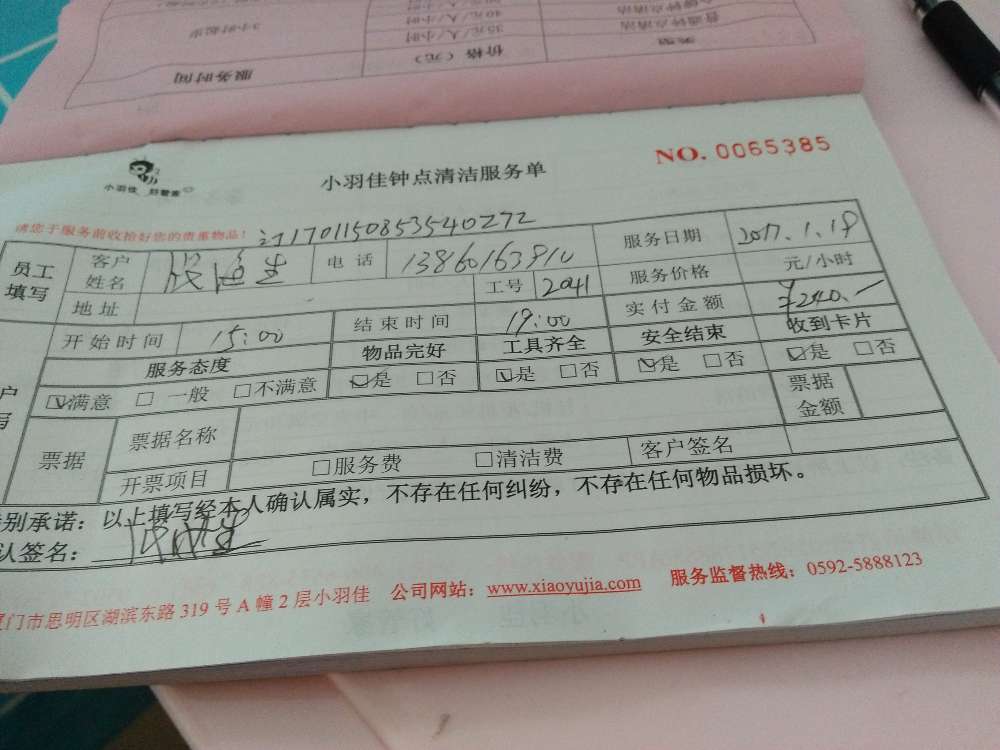 服务时间 价格（元） 类型
3小时起步 35元/人/小时 普通钟点清洁
40元/人/小时
小羽佳 好管家
小羽佳钟点清洁服务单
NO. 0065385
请您于服务前收拾好您的贵重物品！
1701150853540272
员工填写 客户姓名 电话 服务日期 2017.1.18
地址 工号 2041 服务价格 元/小时
开始时间 15:00 结束时间 19:00 实付金额 ¥240.-
服务态度 物品完好 工具齐全 安全结束 收到卡片
☑满意 □ 一般 □不满意 ☑是 □否 ☑是 □否 ☑是 □否 ☑是 □否
票据 票据名称 票据金额
开票项目 □服务费 □清洁费 客户签名
别承诺：以上填写经本人确认属实，不存在任何纠纷，不存在任何物品损坏。
认签名：
门市思明区湖滨东路 319 号 A 幢 2 层小羽佳 公司网站：www.xiaoyujia.com 服务监督热线：0592-5888123